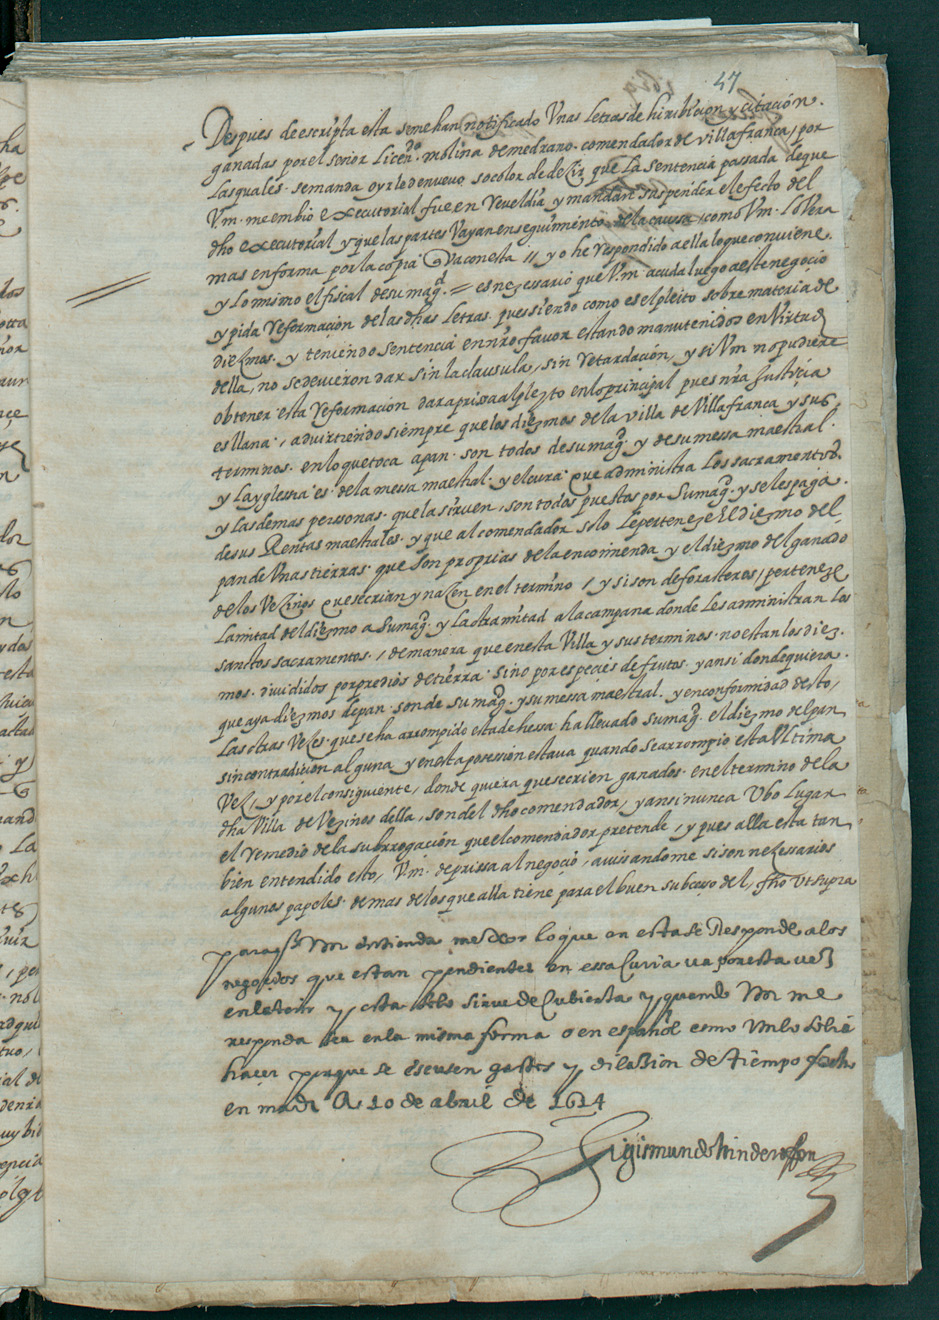 47
Despues de escripta esta se me han notificado Unas letras de hinibicion y citación.
ganadas por el señor Licen.do molina de medrano. comendador de villafranca, por
las quales. se manda oyrle de nuevo so color de dezir que la sentencia passada de que
V.m. me embio executorial fue en Reveldia y mandan suspender el efecto del
dho executorial y que las partes Vayan en seguimiento de la caussa, como Vm. lo vera
mas en forma por la copia que va con esta // y o he Respondido a ella lo que conviene
y lo mismo el fiscal de su mag.d = es nezessario que Vm. acuda luego a este negocio
y pida Reformacion de las dhas letras. pues siendo como es el pleito sobre materia de
diezmos. y teniendo sentencia en nro favor estando manutenidos en Virtud
della, no se devieron dar sin la clausula, sin Retardación, y si Vm no pudiere
obtener esta Reformacion dara prissa al pleyto en lo principal pues nra Justicia
es llana, advirtiendo siempre que los diezmos de la villa de Villafranca y sus
terminos. en lo que toca a pan. son todos de su mag.d y de su messa maestral.
y la yglessia es de la messa maestral. y el cura que administra los sacramentos.
y las demas perssonas. que la sirven, son todos puestos por Su mag.d y se les paga.
de sus Rentas maestrales. y que al comendador solo le perteneze El diezmo del
pan de Unas tierras. que son proprias de la encomienda y el diezmo del ganado
de los Vezinos que se crian y nazen en el termino / y si son de forasteros, perteneze
la mitad del diezmo a Su mag.d y la otra mitad a la campana donde les administran los
sanctos sacramentos. / de manera que en esta Villa y sus terminos. no estan los diez-
mos. divididos por predios de tierra. sino por especies de frutos. y ansi donde quiera.
que aya diezmos de pan. son de su mag.d y su messa maestral. y en conformidad desto,
las otras Vezes. que se ha arrompido esta dehessa ha llevado su mag.d el diezmo del pan
sin contradicion alguna y en esta possesión estava quando se arrompio esta Ultima
Vez, y por el consiguiente, donde quiera que se crien ganados. en el termino de la
dha Villa de Vezinos della, son del dho comendador, y ansi nunca Ubo lugar
el Remedio de la subrrogación que el comendador pretende, y pues alla esta tan
bien entendido esto, V.m. de prissa al negoció, avisandome si son nezessarios
algunos papeles. demas de los que alla tiene para el buen subcesso del, fho Ut supra
para q Vm entienda mejor lo que en esta se Responde a los
negocios que estan pendientes en essa Curia va por esta vez
en letras y esta solo sirve de Cubierta y quando Vm me
responda sea en la misma forma o en español como Vm lo solia
hacer porque se escusen gastos y dilassion de tiempo fecha
en mad.d A 20 de abril de 1614
Sigismundo hinderosson